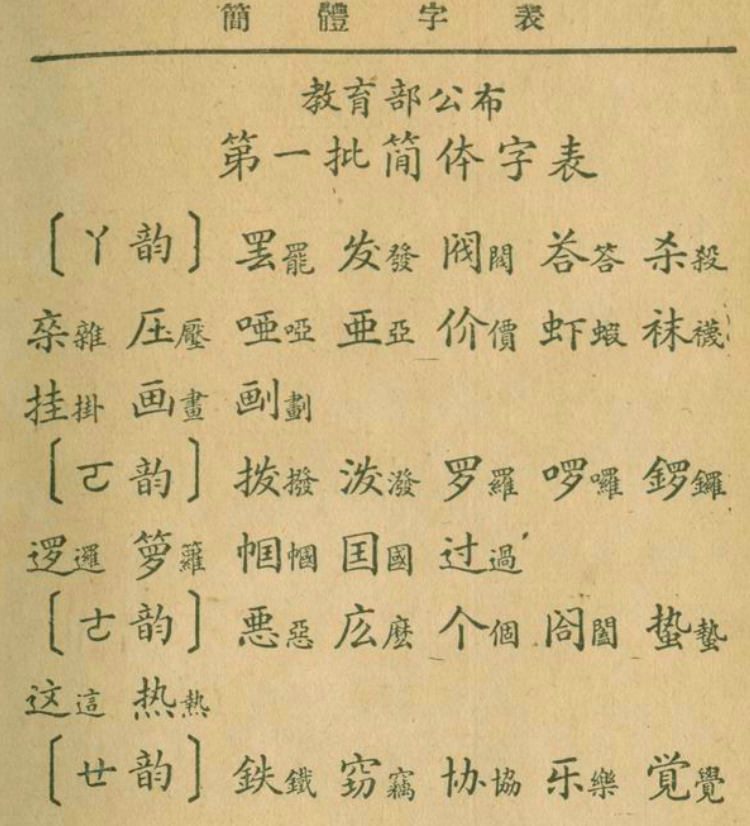 簡體字表
教育部公布
第一批简体字表
〔ㄚ韵〕罢罷 发發 阀閥 荅答 杀殺
杂雜 压壓 哑啞 亜亞 价價 虾蝦 袜襪
挂掛 画畫 劃
〔ㄛ韵〕拨撥 泼潑 罗羅 啰囉 鑼
逻邏 箩籮 帼幗 囯國 过過
〔ㄜ韵〕悪惡 庅麼 个個 閤闔 蛰蟄
这這 热熱
〔ㄝ韵〕鉄鐵 窃竊 协協 乐樂 覚覺